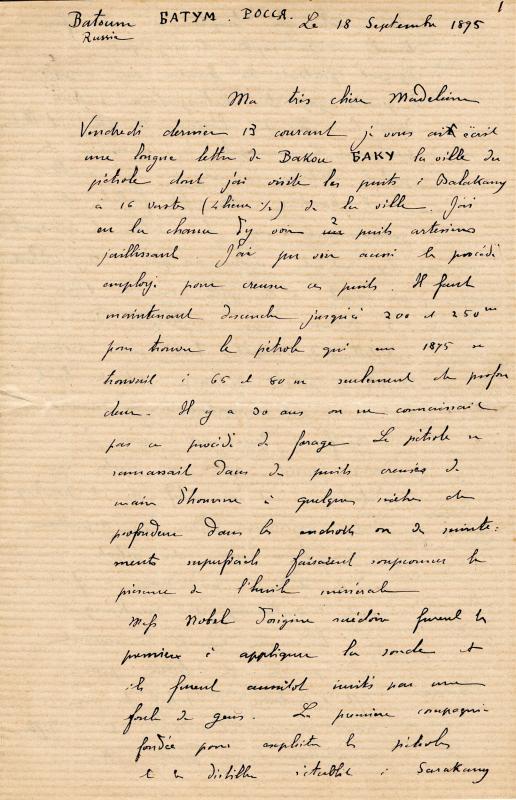 1
Batoum БАТУМ. РОССЯ. Le 18 Septembre 1895
Russie
Ma très chère Madeleine
Vendredi dernier 13 courant je vous ai écrit
une longue lettre de Bakou БАКУ la ville du
pétrole dont j'ai visité les puits à Balakany
à 16 verstes (4 lieues ½) de la ville. J'ai
eu la chance d'y voir 2 puits artésiens
jaillissant. J'ai pu voir aussi le procédé
employé pour creuser ces puits. Il faut
maintenant descendre jusqu'à 200 et 250m
pour trouver le pétrole qui en 1875 se
trouvait à 65 et 80 m seulement de profon
deur. Il y a 30 ans on ne connaissait
pas ce procédé de forage. Le pétrole se
ramassait dans des puits creusés de
main d'homme à quelques mètres de
profondeur dans les endroits où des suinte:
ments superficiels faisaient soupçonner la
présence de l'huile minérale
Mrs Nobel d'origine suédoise furent les
premiers à appliquer la sonde et
ils furent aussitôt imités par une
foule de gens. La première compagnie
fondée pour exploiter le pétrole
et le distiller s'établit à Sarakany